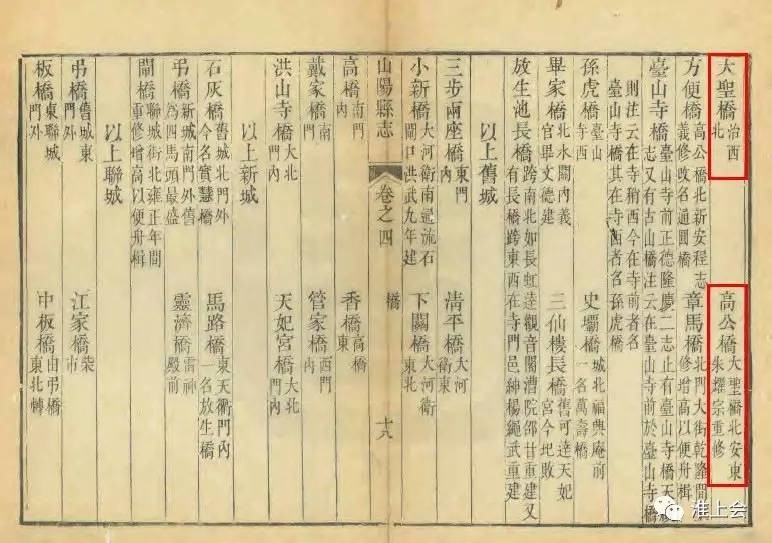 大聖橋 治西北 高公橋 大聖橋北安東朱耀宗重修
方便橋 高公橋北新安程志義修改名通圓橋 章馬橋 北門大街乾隆間修增高以便舟楫
臺山寺橋 臺山寺前正德隆慶二志止有臺山寺橋天志又有古山橋注云在臺山寺前於臺山寺橋
則注云在寺稍西今在寺前者名臺山寺橋其在寺西者名孫虎橋
孫虎橋 臺山寺西 史壩橋 城北福興庵前一名萬壽橋
畢家橋 北水關內義官畢文德建 三仙樓長橋 舊可逹天妃宮今圯敗
放生池長橋 跨南北如長虹逹觀音閣漕院邵甘重建又有長橋跨東西在寺門邑紳楊繩武重建
以上舊城
三步兩座橋 東門內 清平橋 大河衛東
小新橋 大河衛南流石閘口洪武九年建 下關橋 大河衛東北
山陽縣志 卷之四 橋 十八
高橋 南門內 香橋 高橋東
戴家橋 南門 管家橋 西門內
洪山寺橋 大北門內 天妃宮橋 大北門內
以上新城
石灰橋 舊城北門外今名實慧橋 馬路橋 東天衢門內一名放生橋
弔橋 新城南門外舊為四馬頭最盛 靈濟橋 雷神殿前
閘橋 聯城街北雍正年間重修增高以便舟楫
以上聯城
弔橋 舊城東門外 江家橋 柴市
板橋 東聯城門外 中板橋 由弔橋東北轉
淮上会